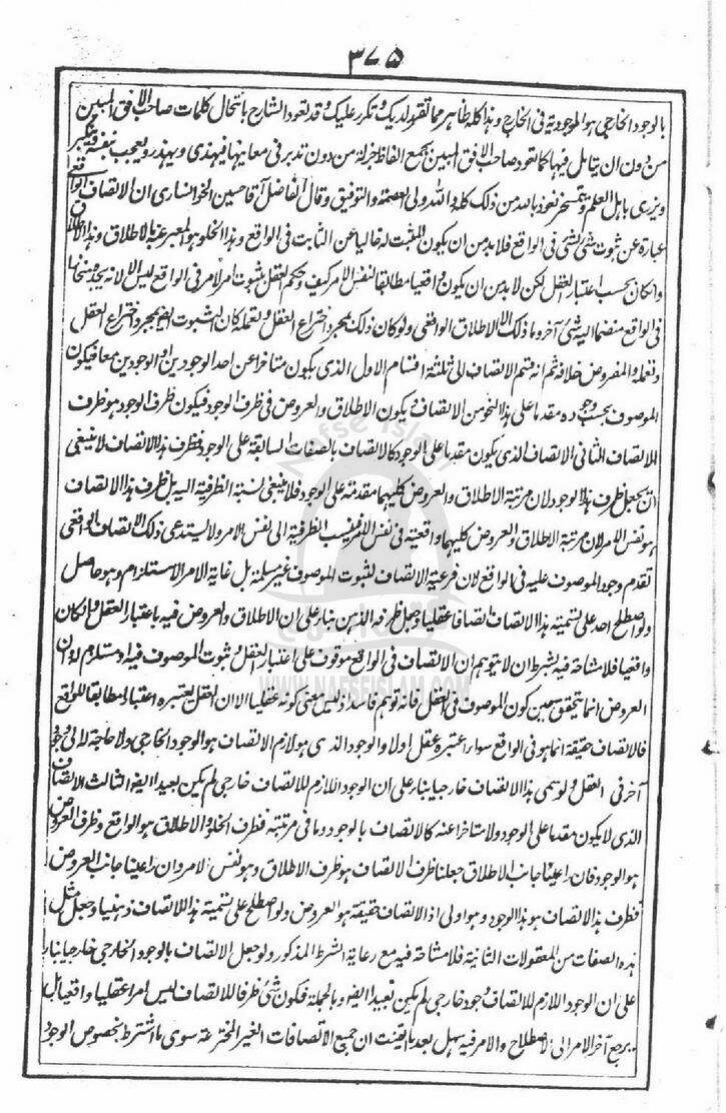 ٣٧٥
بالوجود الخارجي هو الموجودية في الخارج وهذا كله ظاهر مما تقرر لديك وتكرر عليك وقد تعود الشارح بانتحال كلمات صاحب الافق المبين
من دون ان يتامل فيها كما تعود صاحب الافق المبين بجمع الفاظ جزلة من دون تدبر في معانيها فيهذي ويهذر ويعجب بنفسه ويتكبر
ويزري باهل العلم ويتسخر نعوذ بالله من ذلك كله والله ولي العصمة والتوفيق وقال الفاضل آقا حسين الخوانساري ان الاتصاف الواقعي
عبارة عن ثبوت شئ لشئ في الواقع فلا بد من ان يكون المثبت له خاليا عن الثابت في الواقع وهذا الخلو هو المعبر عنه بالاطلاق وهذا الاطلاق
وانكان بحسب اعتبار العقل لكن لا بد من ان يكون واقعيا مطابقا لنفس الامر كيف وحكم العقل بثبوت امر لامر في الواقع ليس الا لانه يجده منحازا
في الواقع منضما اليه شئ آخر وما ذلك الا الاطلاق الواقعي ولو كان ذلك بمجرد اختراع العقل وتعمله كان الثبوت ايضا بمجرد اختراع العقل
وتعمله والمفروض خلافه ثم انه قسم الاتصاف الى ثلثة اقسام الاول الذي يكون متاخرا عن احد الوجودين او الوجودين معا فيكون
الموصوف بحسب وجوده مقدما على هذا النحو من الاتصاف ويكون الاطلاق والعروض في ظرف الوجود فيكون ظرف الوجود هو ظرف
الاتصاف الثاني الاتصاف الذي يكون مقدما على الوجود كالاتصاف بالصفات السابقة على الوجود فظرف هذا الاتصاف لا ينبغي
ان يجعل ظرف هذا الوجود لان مرتبة الاطلاق والعروض كليهما مقدمة على الوجود فلا ينبغي لنسبة الظرفية اليه بل ظرف هذا الاتصاف
هو نفس الامر لان مرتبة الاطلاق والعروض كليهما واقعية في نفس الامر فينسب الظرفية الى نفس الامر ولا يستدعي ذلك الاتصاف الواقعي
تقدم وجود الموصوف عليه في الواقع لان فرعية الاتصاف لثبوت الموصوف غير مسلمة بل غاية الامر الاستلزام وهو حاصل
ولو اصطلح احد على تسمية هذا الاتصاف اتصافا عقليا وجعل ظرفه الذهن بناء على ان الاطلاق والعروض فيه باعتبار العقل وانكان
واقعيا فلا مشاحة فيه بشرط ان لا يتوهم ان الاتصاف في الواقع موقوف على اعتبار العقل وثبوت الموصوف فيه او مستلزم له وان
العروض انما يتحقق حين كون الموصوف في العقل فانه توهم فاسد اذ ليس معنى كونه عقليا الا ان العقل يعتبره اعتبارا مطابقا للواقع
فالاتصاف حقيقة انما هو في الواقع سواء اعتبره عقل اولا والوجود الذي هو لازم الاتصاف هو الوجود الخارجي ولا حاجة الى وجود
آخر في العقل ولو سمي هذا الاتصاف خارجيا بناء على ان الوجود اللازم للاتصاف خارجي لم يكن بعيدا ايضا الثالث الاتصاف
الذي لا يكون مقدما على الوجود ولا متاخرا عنه كالاتصاف بالوجود وما في مرتبته فظرف الخلو والاطلاق هو الواقع وظرف العروض
هو الوجود فان راعينا جانب الاطلاق جعلنا ظرف الاتصاف هو ظرف الاطلاق وهو نفس الامر وان راعينا جانب العروض
فظرف هذا الاتصاف هو هذا الوجود وهو اولى اذ الاتصاف حقيقة هو العروض ولو اصطلح على تسمية هذا الاتصاف ذهنيا وجعل مثل
هذه الصفات من المعقولات الثانية فلا مشاحة فيه مع رعاية الشرط المذكور ولو جعل الاتصاف بالوجود الخارجي خارجيا بناء
على ان الوجود اللازم للاتصاف وجود خارجي لم يكن بعيدا ايضا وبالجملة فكون شئ ظرفا للاتصاف ليس امرا عقليا واقعيا بل
يرجع آخر الامر الى الاصطلاح والامر فيه سهل بعد ما تيقنت ان جميع الاتصافات الغير المخترعة سوى ما اشترط بخصوص الوجود
Nafse Islam
WWW.NAFSEISLAM.COM